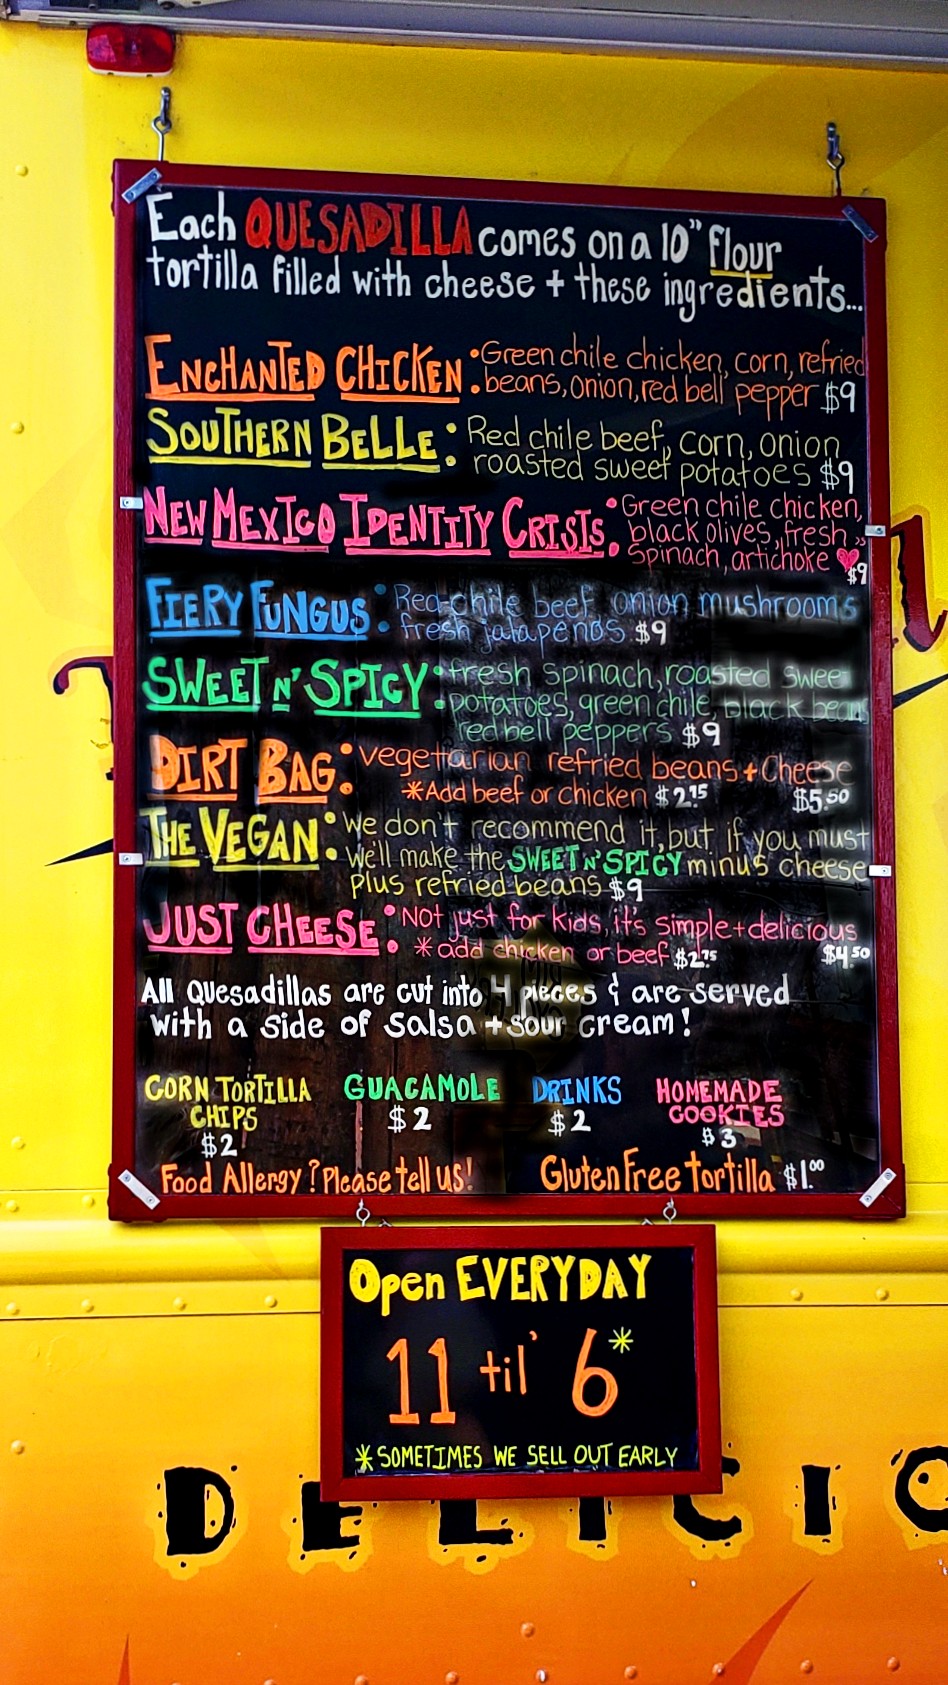 Each QUESADILLA comes on a 10" flour
tortilla filled with cheese + these ingredients...
ENCHANTED CHICKEN: Green chile chicken, corn, refried
beans, onion, red bell pepper $9
SOUTHERN BELLE: Red chile beef, corn, onion
roasted sweet potatoes $9
NEW MEXICO IDENTITY CRISIS: Green chile chicken,
black olives, fresh
spinach, artichoke $9
FIERY FUNGUS: Red chile beef onion mushrooms
fresh jalapenos $9
SWEET N' SPICY: fresh spinach, roasted sweet
potatoes, green chile, black beans
red bell peppers $9
DIRT BAG: vegetarian refried beans + Cheese
*Add beef or chicken $2.75 $5.50
THE VEGAN: we don't recommend it, but if you must
we'll make the SWEET N' SPICY minus cheese
plus refried beans $9
JUST CHEESE: Not just for kids, it's simple + delicious
*add chicken or beef $2.75 $4.50
All Quesadillas are cut into 4 pieces & are served
with a side of salsa + sour cream!
CORN TORTILLA CHIPS $2
GUACAMOLE $2
DRINKS $2
HOMEMADE COOKIES $3
Food Allergy? Please tell us! Gluten Free tortilla $1.00
Open EVERYDAY
11 til' 6*
*SOMETIMES WE SELL OUT EARLY
DELICIO